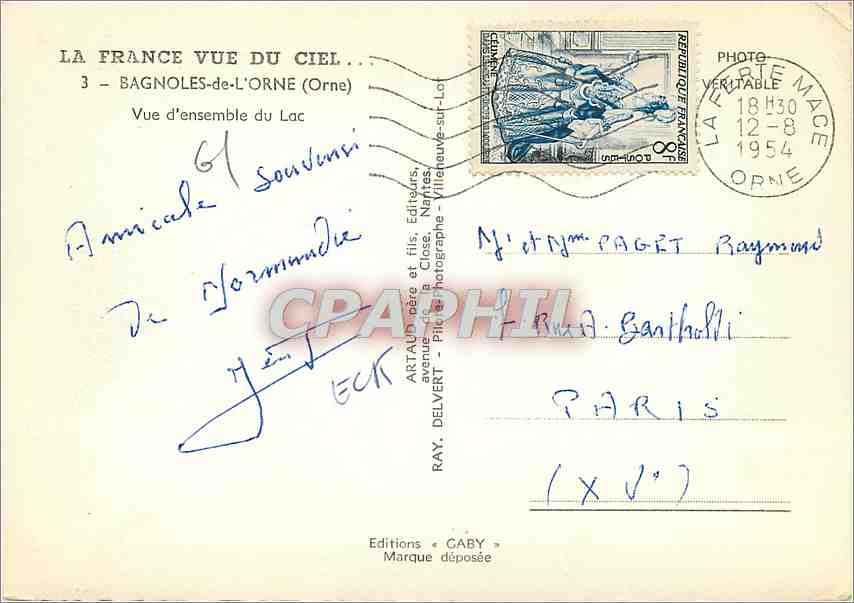 LA FRANCE VUE DU CIEL...
3 - BAGNOLES-de-L'ORNE (Orne)
Vue d'ensemble du Lac
PHOTO
VERITABLE
RÉPUBLIQUE FRANÇAISE
8F
POSTES
CÉLIMÈNE
LA FERTE MACE
18H30
12-8
1954
ORNE
61
Amicale souvenir
De Normandie
ECK
ARTAUD père et fils, Editeurs,
avenue de la Close, Nantes
RAY. DELVERT - Pilote-Photographe - Villeneuve-sur-Lot
Mr et Mme PAGET Raymond
Rue A. Bartholdi
PARIS
(XVe)
CPAPHIL
Editions « GABY »
Marque déposée